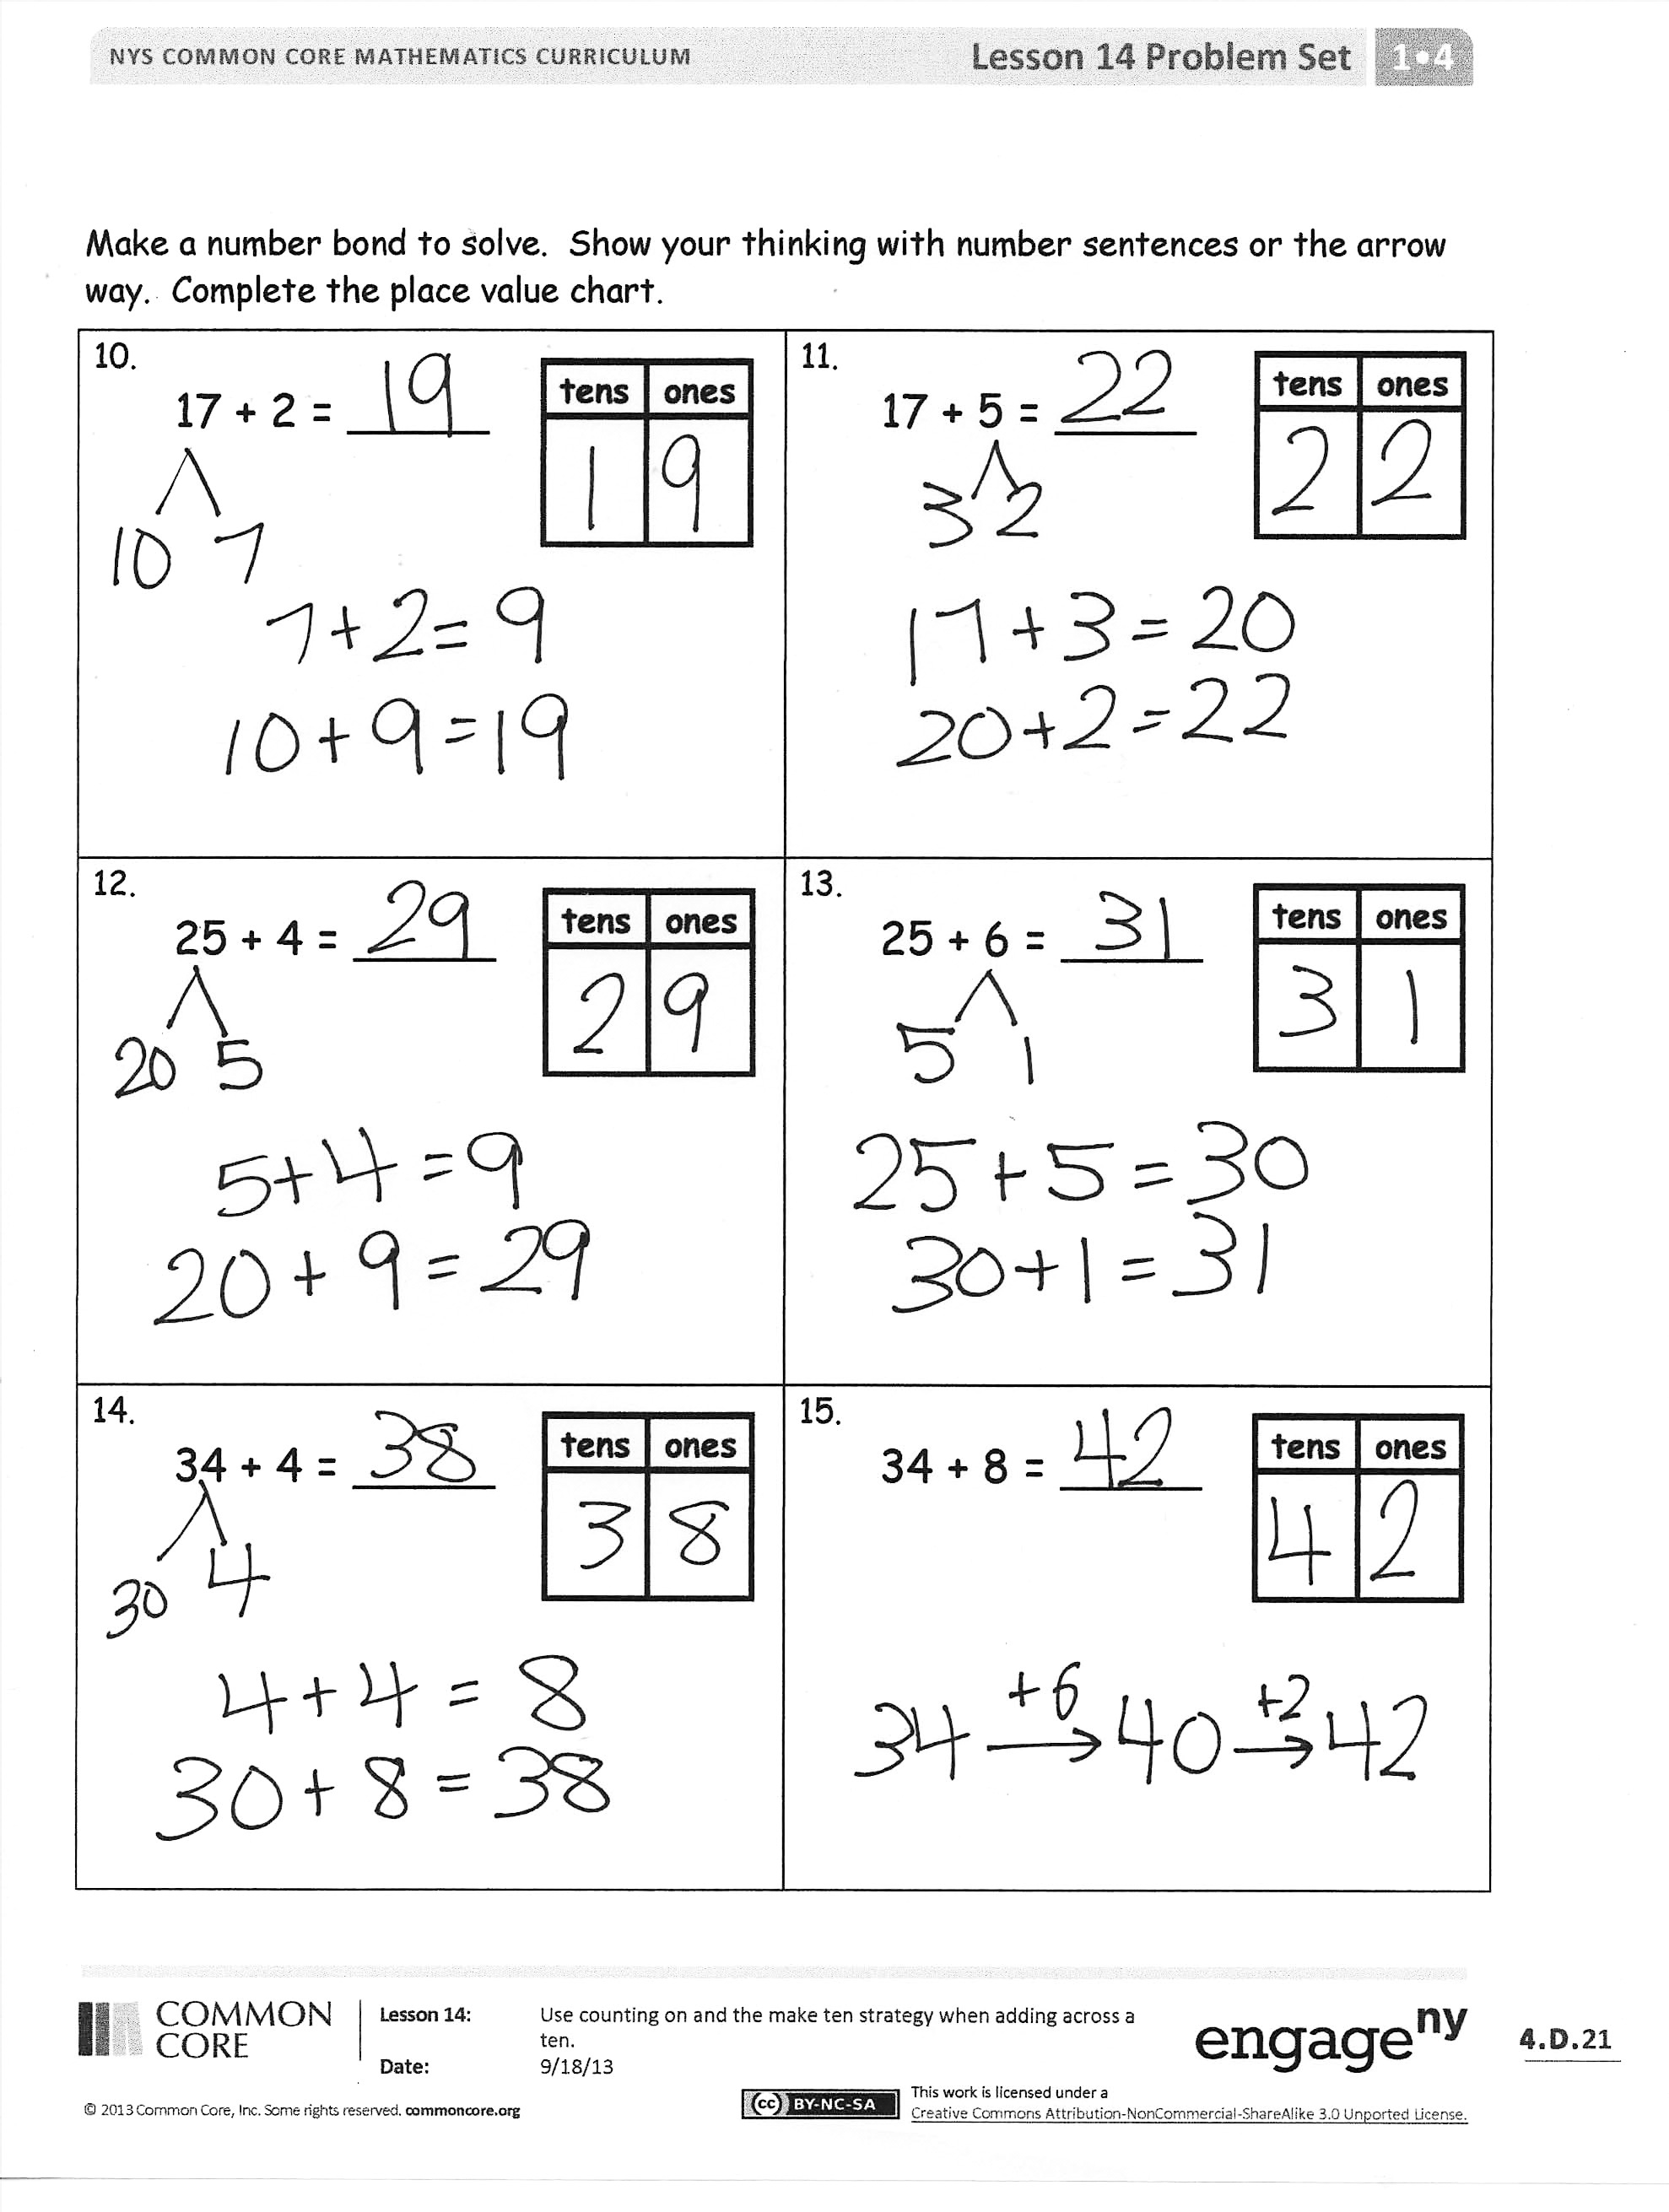 NYS COMMON CORE MATHEMATICS CURRICULUM Lesson 14 Problem Set 1•4
Make a number bond to solve. Show your thinking with number sentences or the arrow
way. Complete the place value chart.
10.
17 + 2 = 19
tens ones
1 9
10 7
7+2=9
10+9=19
11.
17 + 5 = 22
tens ones
2 2
3 2
17+3=20
20+2=22
12.
25 + 4 = 29
tens ones
2 9
20 5
5+4=9
20+9=29
13.
25 + 6 = 31
tens ones
3 1
5 1
25+5=30
30+1=31
14.
34 + 4 = 38
tens ones
3 8
30 4
4+4=8
30+8=38
15.
34 + 8 = 42
tens ones
4 2
+6 +2
34 → 40 → 42
COMMON
CORE
Lesson 14: Use counting on and the make ten strategy when adding across a
ten.
Date: 9/18/13
engageny
4.D.21
© 2013 Common Core, Inc. Some rights reserved. commoncore.org
cc BY-NC-SA
This work is licensed under a
Creative Commons Attribution-NonCommercial-ShareAlike 3.0 Unported License.